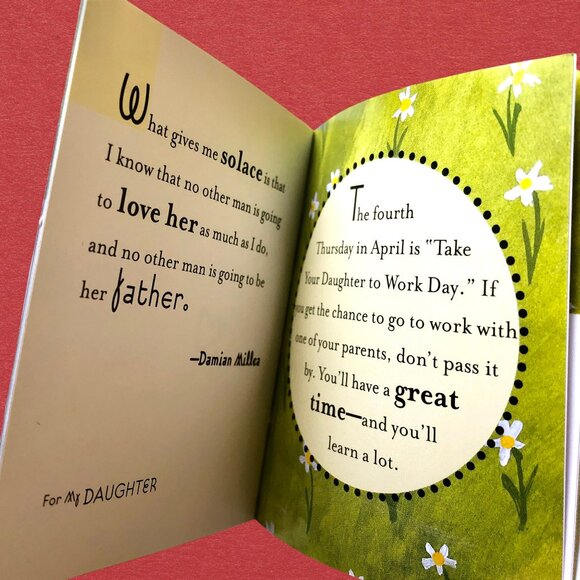 What gives me solace is that
I know that no other man is going
to love her as much as I do,
and no other man is going to be
her father.
—Damian Millea
For My DAUGHTER
The fourth
Thursday in April is “Take
Your Daughter to Work Day.” If
you get the chance to go to work with
one of your parents, don’t pass it
by. You’ll have a great
time—and you’ll
learn a lot.